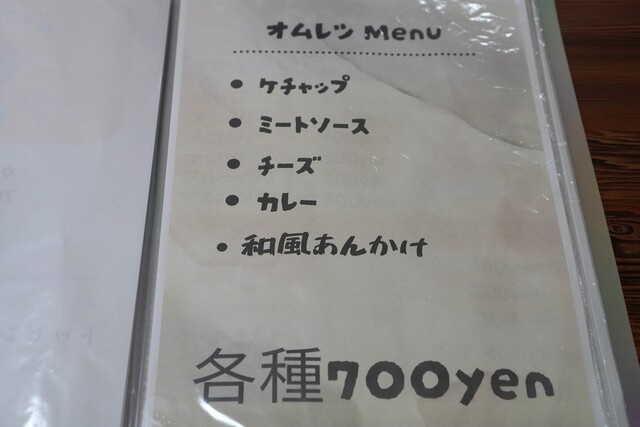 オムレツ Menu
• ケチャップ
• ミートソース
• チーズ
• カレー
• 和風あんかけ
各種700yen